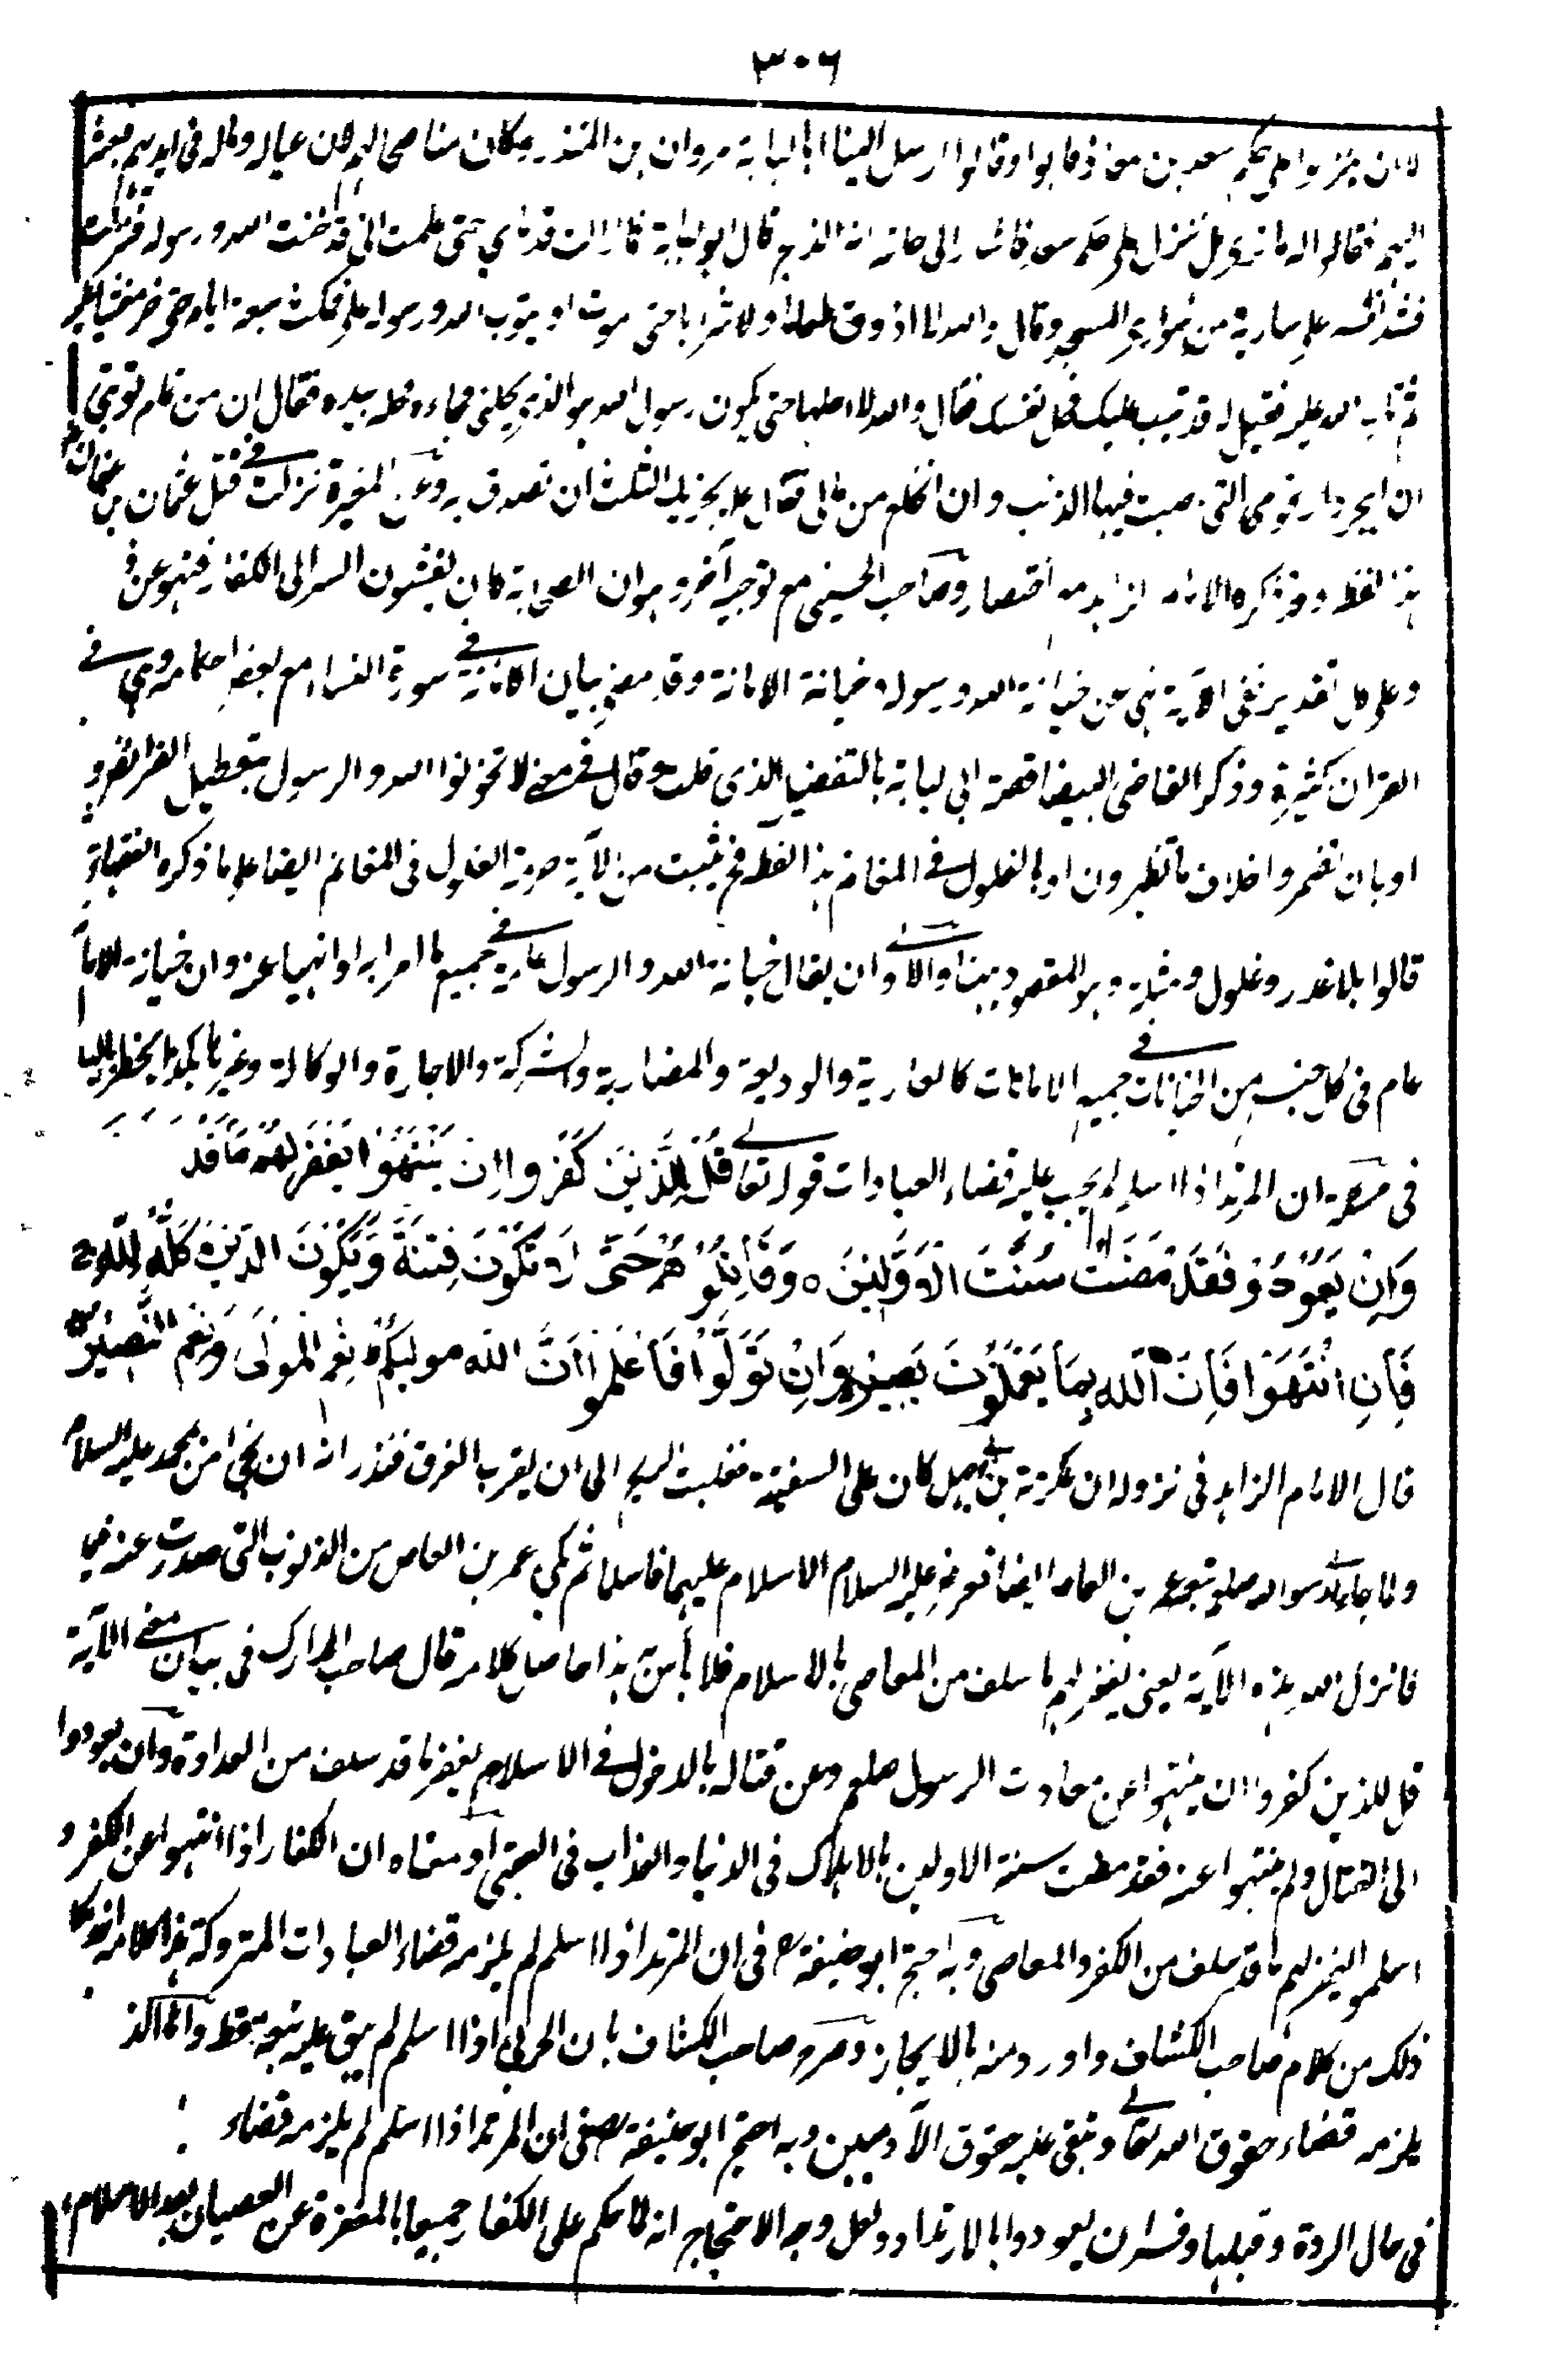 ٣٠٦
الا ان ينزلوا على حكم سعد بن معاذ فابوا وقالوا ارسل الينا ابا لبابة مروان بن المنذر وكان مناصحا لهم لان عياله وماله فى ايديهم فبعثه
اليهم فقالوا له ما ترى هل ننزل على حكم سعد فاشار الى حلقه انه الذبح قال ابو لبابة فما زالت قدماى حتى علمت انى قد خنت الله ورسوله فنزلت
فشد نفسه على سارية من سوارى المسجد وقال والله لا اذوق طعاما ولا شرابا حتى اموت او يتوب الله ورسوله على فمكث سبعة ايام حتى خر مغشيا عليه
ثم تاب الله عليه فقيل له قد تيب عليك فحل نفسك فقال والله لا احلها حتى يكون رسول الله هو الذى يحلنى فجاءه فحله بيده فقال ان من تمام توبتى
ان اهجر دار قومى التى اصبت فيها الذنب وان انخلع من مالى فقال عم يجزيك الثلث ان تصدق به وعن المغيرة نزلت فى قتل عثمان بن عفان
هذا لفظه وقد ذكره الامام الزاهد مع اختصار وصاحب الحسينى مع توجيه آخر وهو ان الصحابة كان يفشون السر الى الكفار فنهوا عنه
وعلى كل تقدير ففى الآية نهى عن خيانة الله ورسوله وخيانة الامانة وقد مضى بيان الامانة فى سورة النساء مع بعض احكامه وهى فى
القرآن كثيرة وذكر القاضى البيضا قصة ابى لبابة بالتفصيل الذى قلت وقال فى معنى لا تخونوا الله والرسول بتعطيل الفرائض و
او بان تضمروا خلاف ما تظهرون او بالغلول فى المغانم هذا لفظه فح يثبت من الآية حرمة الغلول فى المغانم ايضا على ما ذكره الفقهاء
قالوا بلا غدر وغلول ومثلة وهو المقصود ههنا والاولى ان يقال خيانة الله والرسول عامة فى جميع ما امرا به او نهيا عنه وان خيانة الامانة
عام فى كل جنس من الخيانات فى جميع الامانات كالعارية والوديعة والمضاربة والشركة والاجارة والوكالة وغيرها هكذا يخطر بالبال
فى مسئلة ان المرتد اذا اسلم لم يجب عليه قضاء العبادات قوله تعالى قُلْ لِلَّذِيْنَ كَفَرُوا اِنْ يَنْتَهُوْا يُغْفَرْ لَهُمْ مَا قَدْ سَلَفَ
وَاِنْ يَعُوْدُوْا فَقَدْ مَضَتْ سُنَّتُ الْاَوَّلِيْنَ ٥ وَقَاتِلُوْهُمْ حَتّٰى لَا تَكُوْنَ فِتْنَةٌ وَّيَكُوْنَ الدِّيْنُ كُلُّهُ لِلّٰهِ
فَاِنِ انْتَهَوْا فَاِنَّ اللّٰهَ بِمَا يَعْمَلُوْنَ بَصِيْرٌ وَاِنْ تَوَلَّوْا فَاعْلَمُوا اَنَّ اللّٰهَ مَوْلٰىكُمْ نِعْمَ الْمَوْلٰى وَنِعْمَ النَّصِيْرُ
قال الامام الزاهد فى نزوله ان عكرمة بن ابى جهل كان على السفينة فغلبت الريح الى ان يقرب الغرق فنذر انه ان نجى امن بمحمد عليه السلام
ولما جاء الى رسول الله صلعم تبعه عمرو بن العاص ايضا فعرض عليه السلام الاسلام عليهما فاسلما ثم بكى عمرو بن العاص من الذنوب التى صدرت عنه
فانزل الله هذه الآية يعنى يغفر لهم ما سلف من المعاصى بالاسلام فلا بأس به هذا حاصل كلامه قال صاحب المدارك فى بيان معنى الآية
قل للذين كفروا ان ينتهوا عن معادات الرسول صلعم وعن قتاله بالدخول فى الاسلام يغفر ما قد سلف من العداوة وان يعودوا
الى القتال ولم ينتهوا عنه فقد مضت سنة الاولين بالاهلاك فى الدنيا والعذاب فى العقبى او معناه ان الكفار اذا انتهوا عن الكفر و
اسلموا يغفر لهم ما قد سلف من الكفر والمعاصى وبه احتج ابو حنيفة رح فى ان المرتد اذا اسلم لم يلزمه قضاء العبادات المتروكة هذا كلامه
ذلك من كلام صاحب الكشاف واورد منه بالايجاز وصرح صاحب الكشاف بان الحربى اذا اسلم لم يبق عليه تبعة قط واما الذمى
يلزمه قضاء حقوق الله تعالى وتبقى عليه حقوق الآدميين وبه احتج ابو حنيفة رح فى ان المرتد اذا اسلم لم يلزمه قضاء
فى حال الردة وقبلها وفسر ان يعودوا بالارتداد ولعل وجه الاحتجاج انه لما حكم على الكفار جميعا بالمغفرة عن العصيان بعد الاسلام